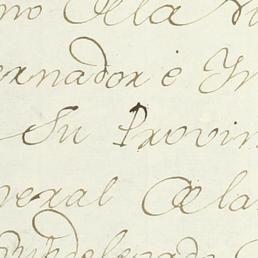 no de la Vi
ernador é In
Su Provin
neral de la
Subdelegado